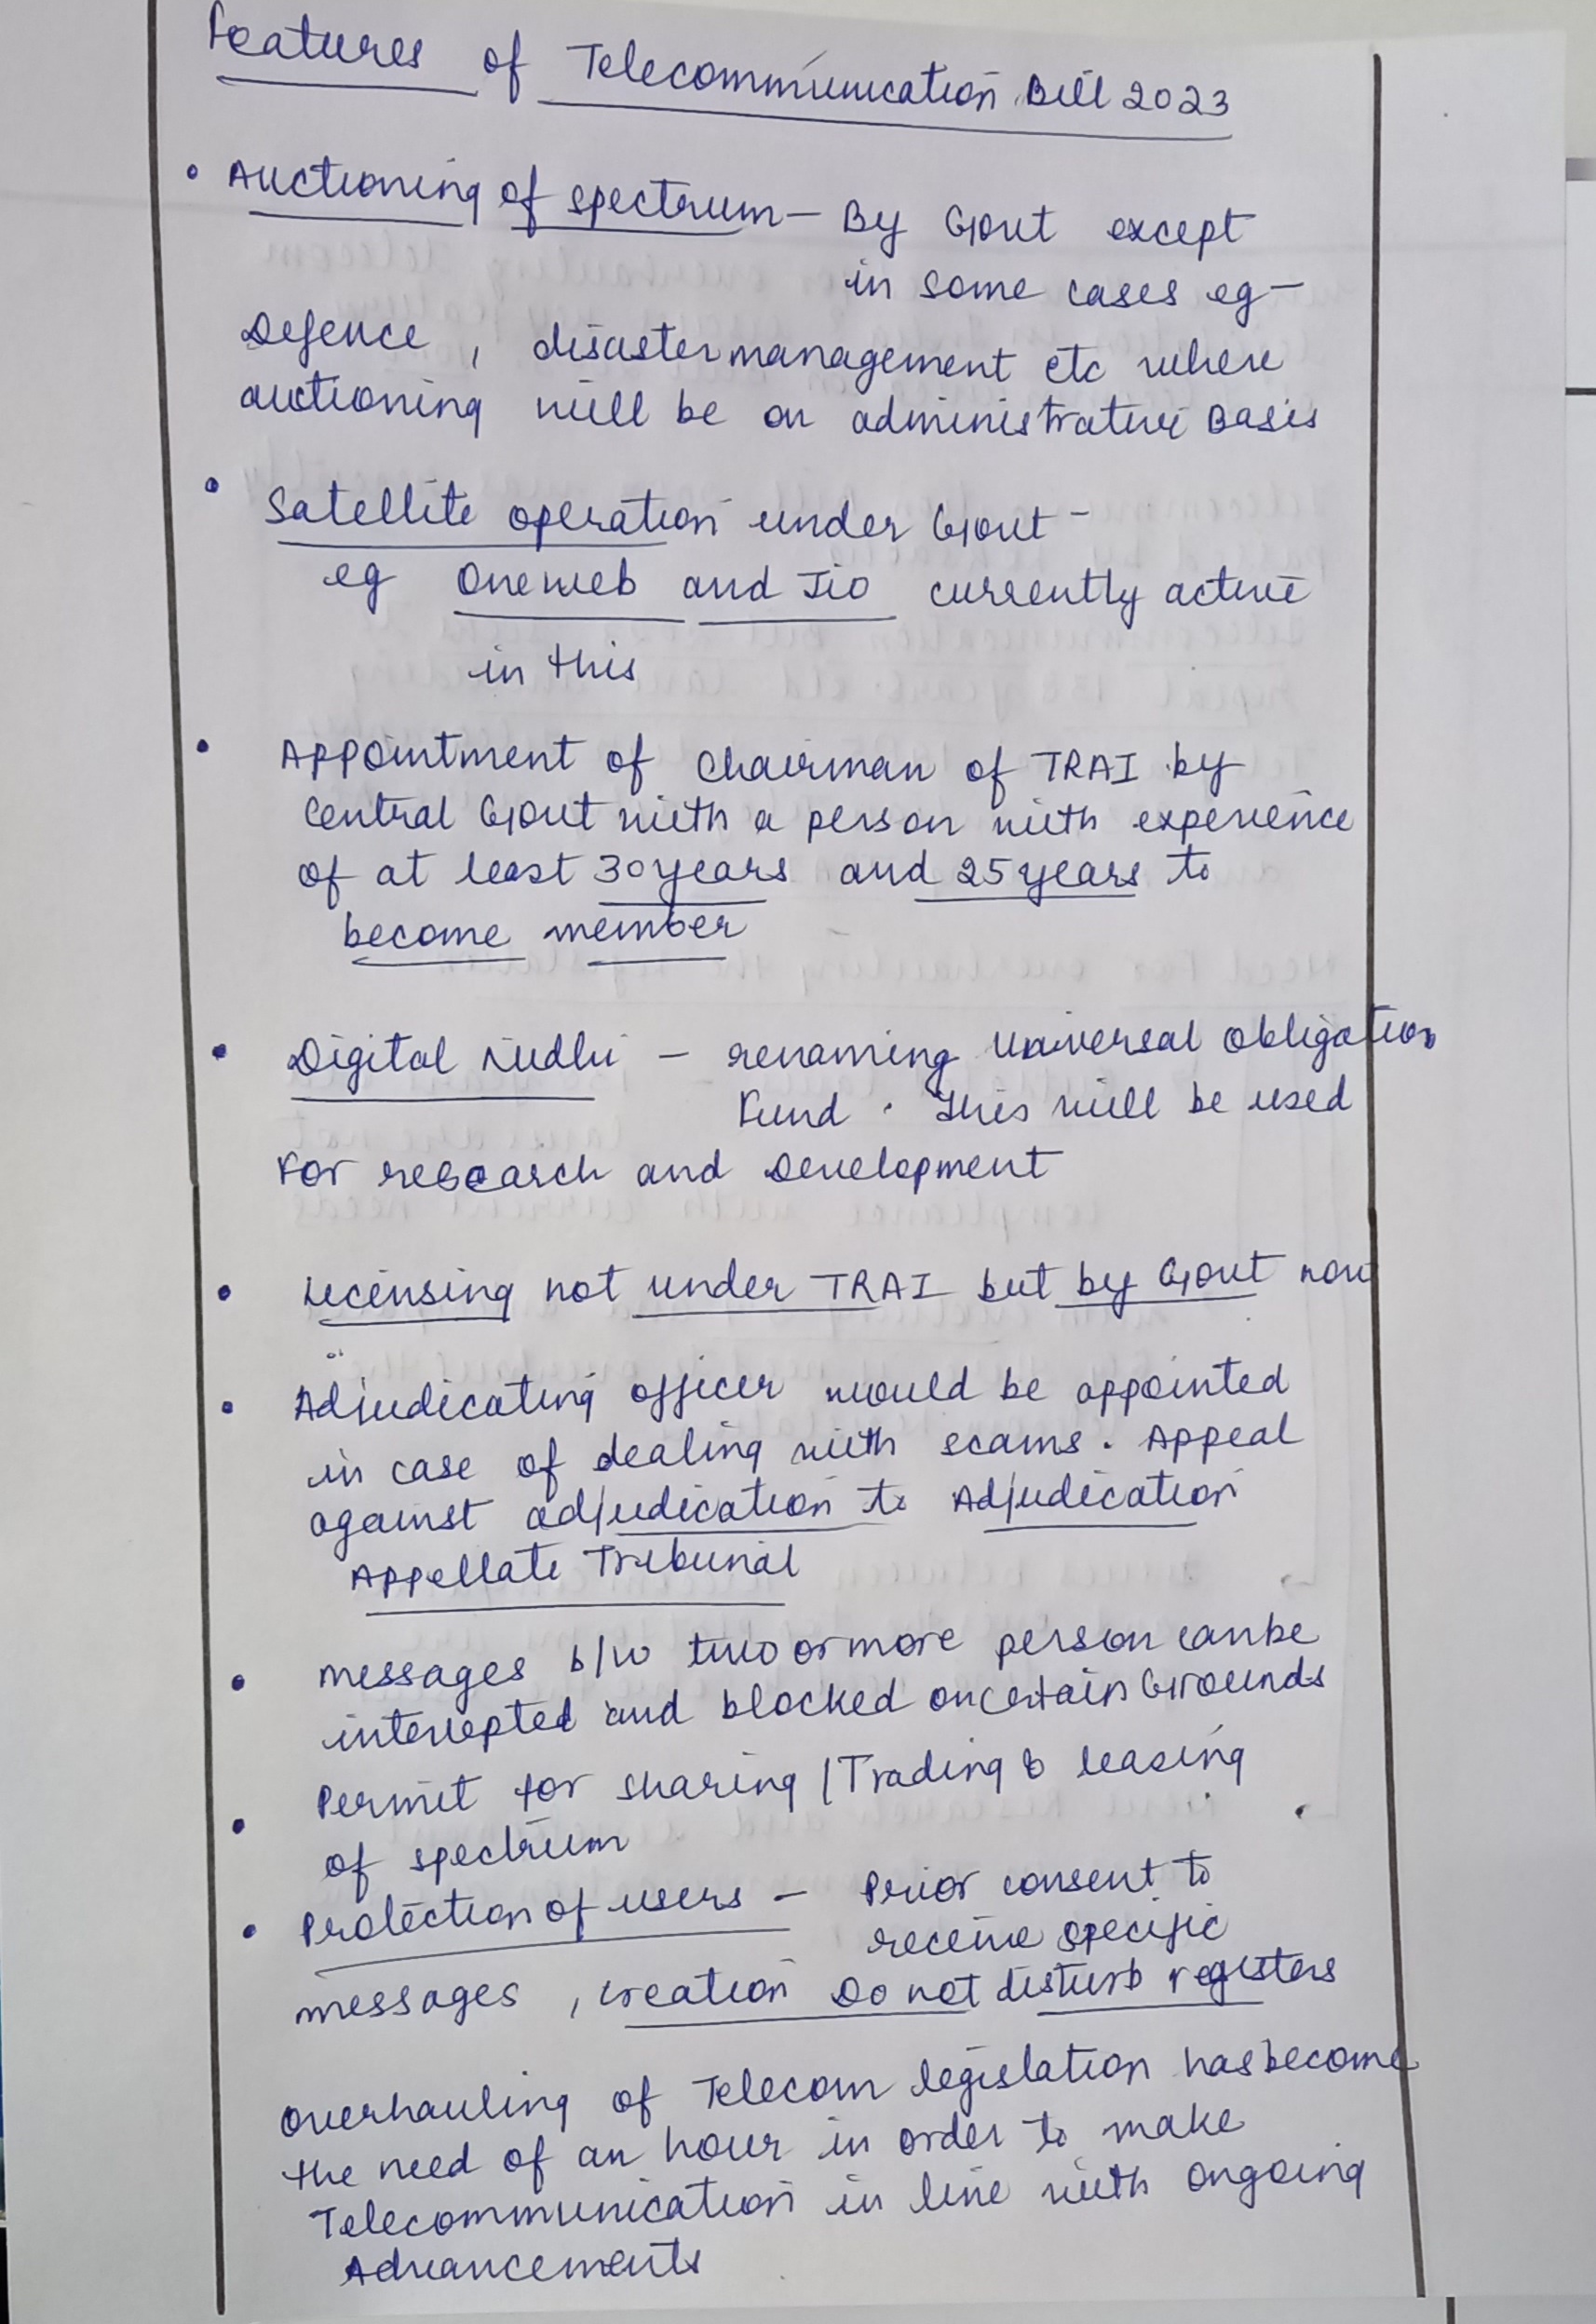 Features of Telecommunication Bill 2023
• Auctioning of spectrum – By Govt except
in some cases eg –
Defence , disaster management etc where
auctioning will be on administrative Basis
• Satellite operation under Govt –
eg Oneweb and Jio currently active
in this
• Appointment of Chairman of TRAI by
Central Govt with a person with experience
of at least 30 years and 25 years to
become member
• Digital Nidhi – renaming Universal Obligation
Fund . This will be used
For research and Development
• Licensing not under TRAI but by Govt now
• Adjudicating officer would be appointed
in case of dealing with scams . Appeal
against adjudication to Adjudication
Appellate Tribunal
• messages b/w two or more person can be
intercepted and blocked on certain Grounds
• Permit for sharing / Trading & leasing
of spectrum
• Protection of users – Prior consent to
receive specific
messages , creation Do not disturb registers
Overhauling of Telecom legislation has become
the need of an hour in order to make
Telecommunication in line with ongoing
Advancements